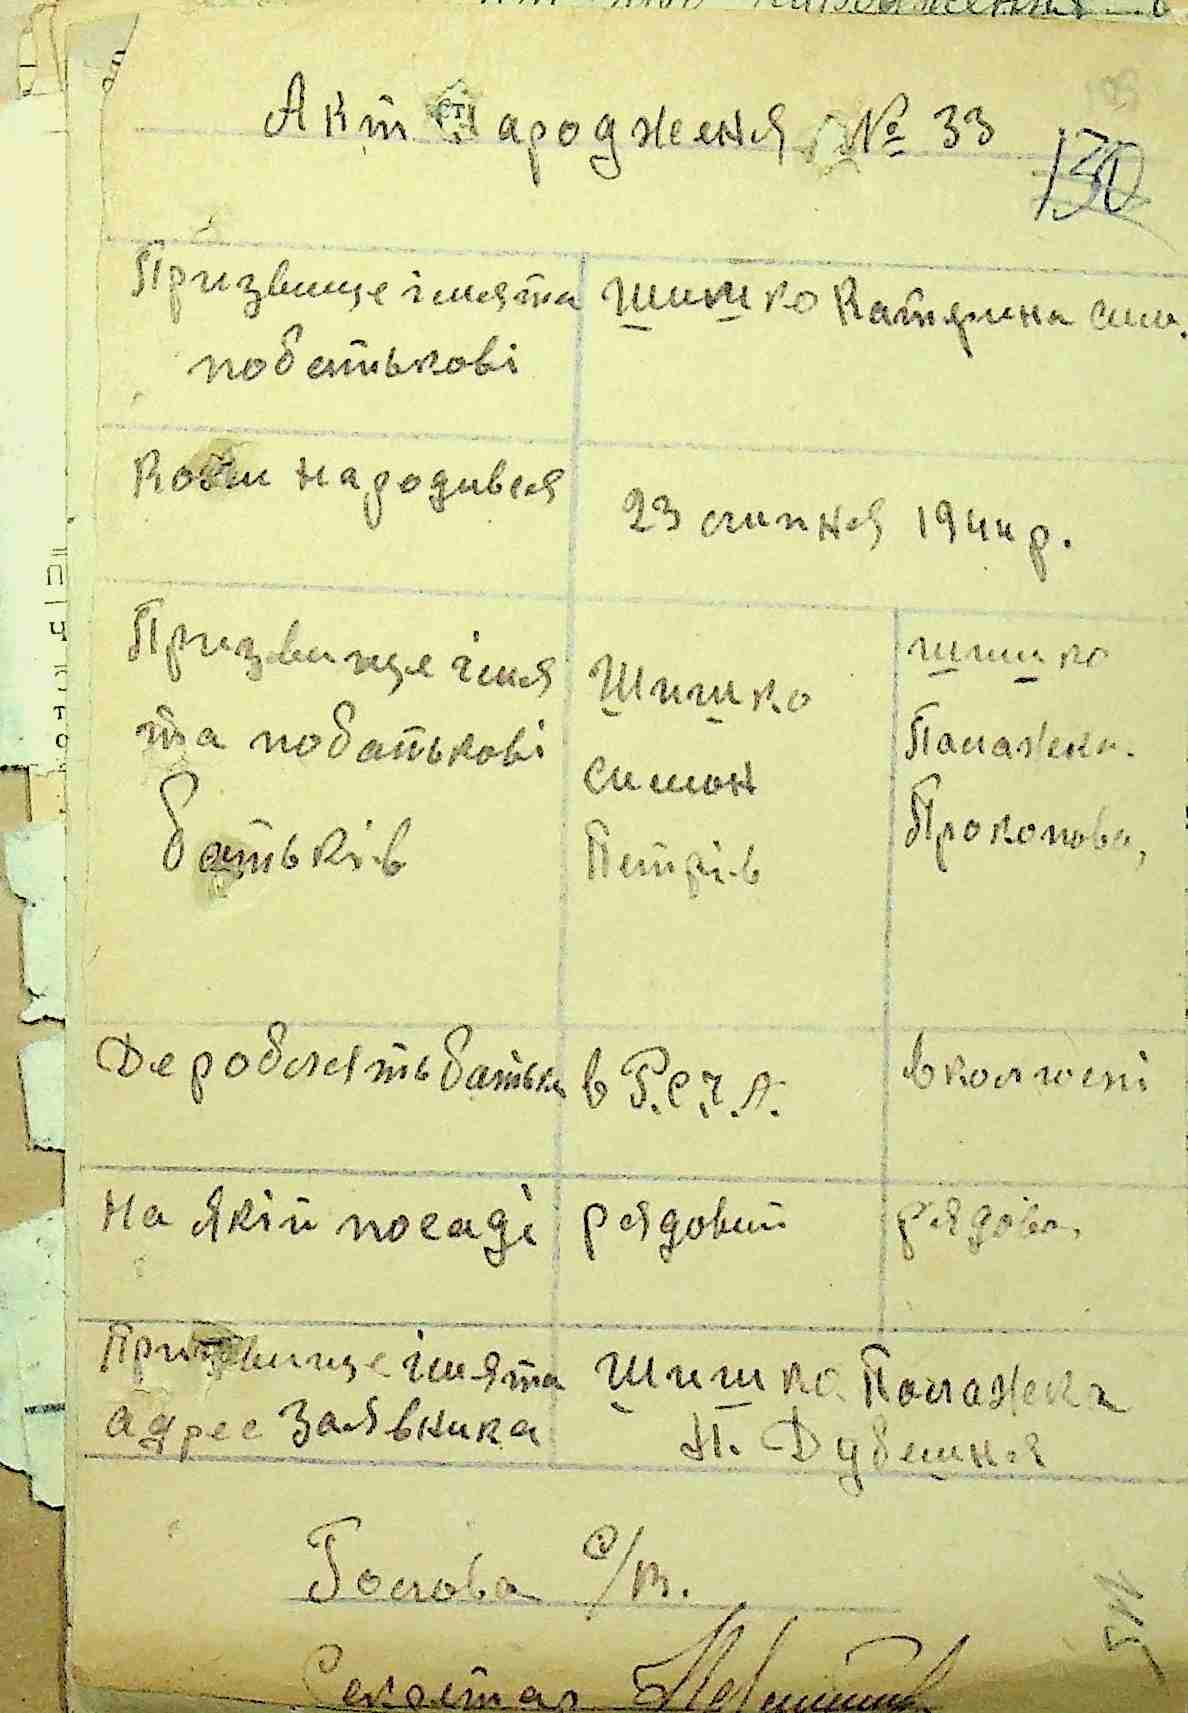 Акт народженя № 33
130
Призвище імя та
побатькові
Шишко Катярина сим.
Коли народився
23 липня 1944 р.
Призвище імя
та побатькові
батьків
Шишко
Симон
Петрів
Шишко
Палажка
Прокопова
Де роблять батьки
в Р.С.Ч.А.
в колгоспі
На якій посаді
рядовий
рядова
Призвище імя та
адрес заявника
Шишко Палажка
Н. Дубешня
Голова с/в.
Секретар